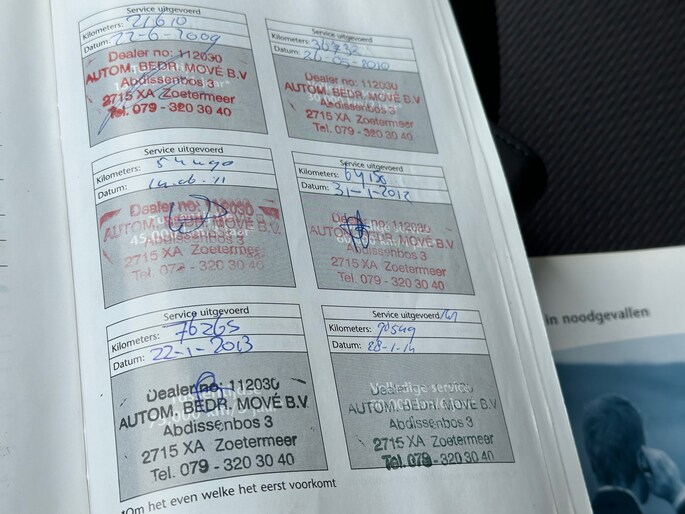 Service uitgevoerd
Kilometers: 21610
Datum: 22-6-2009
Dealer no: 112030
AUTOM. BEDR. MOVÉ B.V.
Abdissenbos 3
2715 XA Zoetermeer
Tel. 079 - 320 30 40
Service uitgevoerd
Kilometers:
Datum: 26-05-2010
Dealer no: 112030
AUTOM. BEDR. MOVÉ B.V.
Abdissenbos 3
2715 XA Zoetermeer
Tel. 079 - 320 30 40
Service uitgevoerd
Kilometers:
Datum:
Dealer no: 112030
AUTOM. BEDR. MOVÉ B.V.
Abdissenbos 3
2715 XA Zoetermeer
Tel. 079 - 320 30 40
Service uitgevoerd
Kilometers:
Datum: 31-1-2012
Dealer no: 112030
AUTOM. BEDR. MOVÉ B.V.
Abdissenbos 3
2715 XA Zoetermeer
Tel. 079 - 320 30 40
Service uitgevoerd
Kilometers: 76265
Datum: 22-1-2013
Dealer no: 112030
AUTOM. BEDR. MOVÉ B.V.
Abdissenbos 3
2715 XA Zoetermeer
Tel. 079 - 320 30 40
Service uitgevoerd
Kilometers:
Datum: 28-1-14
Volledige service
AUTOM. BEDR. MOVÉ B.V.
Abdissenbos 3
2715 XA Zoetermeer
Tel. 079 - 320 30 40
*Om het even welke het eerst voorkomt
in noodgevallen